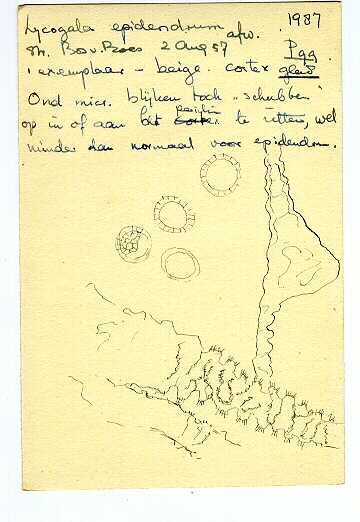 Lycogala epidendrum afw. 1987
th. Bov. Roes 2 Aug 57 Pgg
1 exemplaar - beige. cortex glad
Ond. micr. blijken toch „schubben"
op in of aan het peridin cortex te zitten, wel
minder dan normaal voor epidendrum.